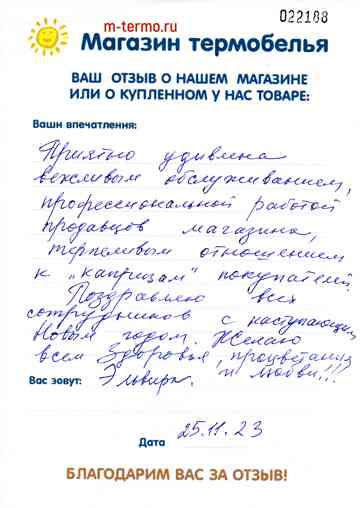 022188
m-termo.ru
Магазин термобелья
ВАШ ОТЗЫВ О НАШЕМ МАГАЗИНЕ
ИЛИ О КУПЛЕННОМ У НАС ТОВАРЕ:
Ваши впечатления:
Приятно удивлена
вежливым обслуживанием,
профессиональной работой
продавцов магазина,
терпеливым отношением
к „капризам" покупателей.
Поздравляю всех
сотрудников с наступающим
Новым годом. Желаю
всем здоровья, процветания
Вас зовут: Эльвира. и любви!!!
Дата 25.11.23
БЛАГОДАРИМ ВАС ЗА ОТЗЫВ!